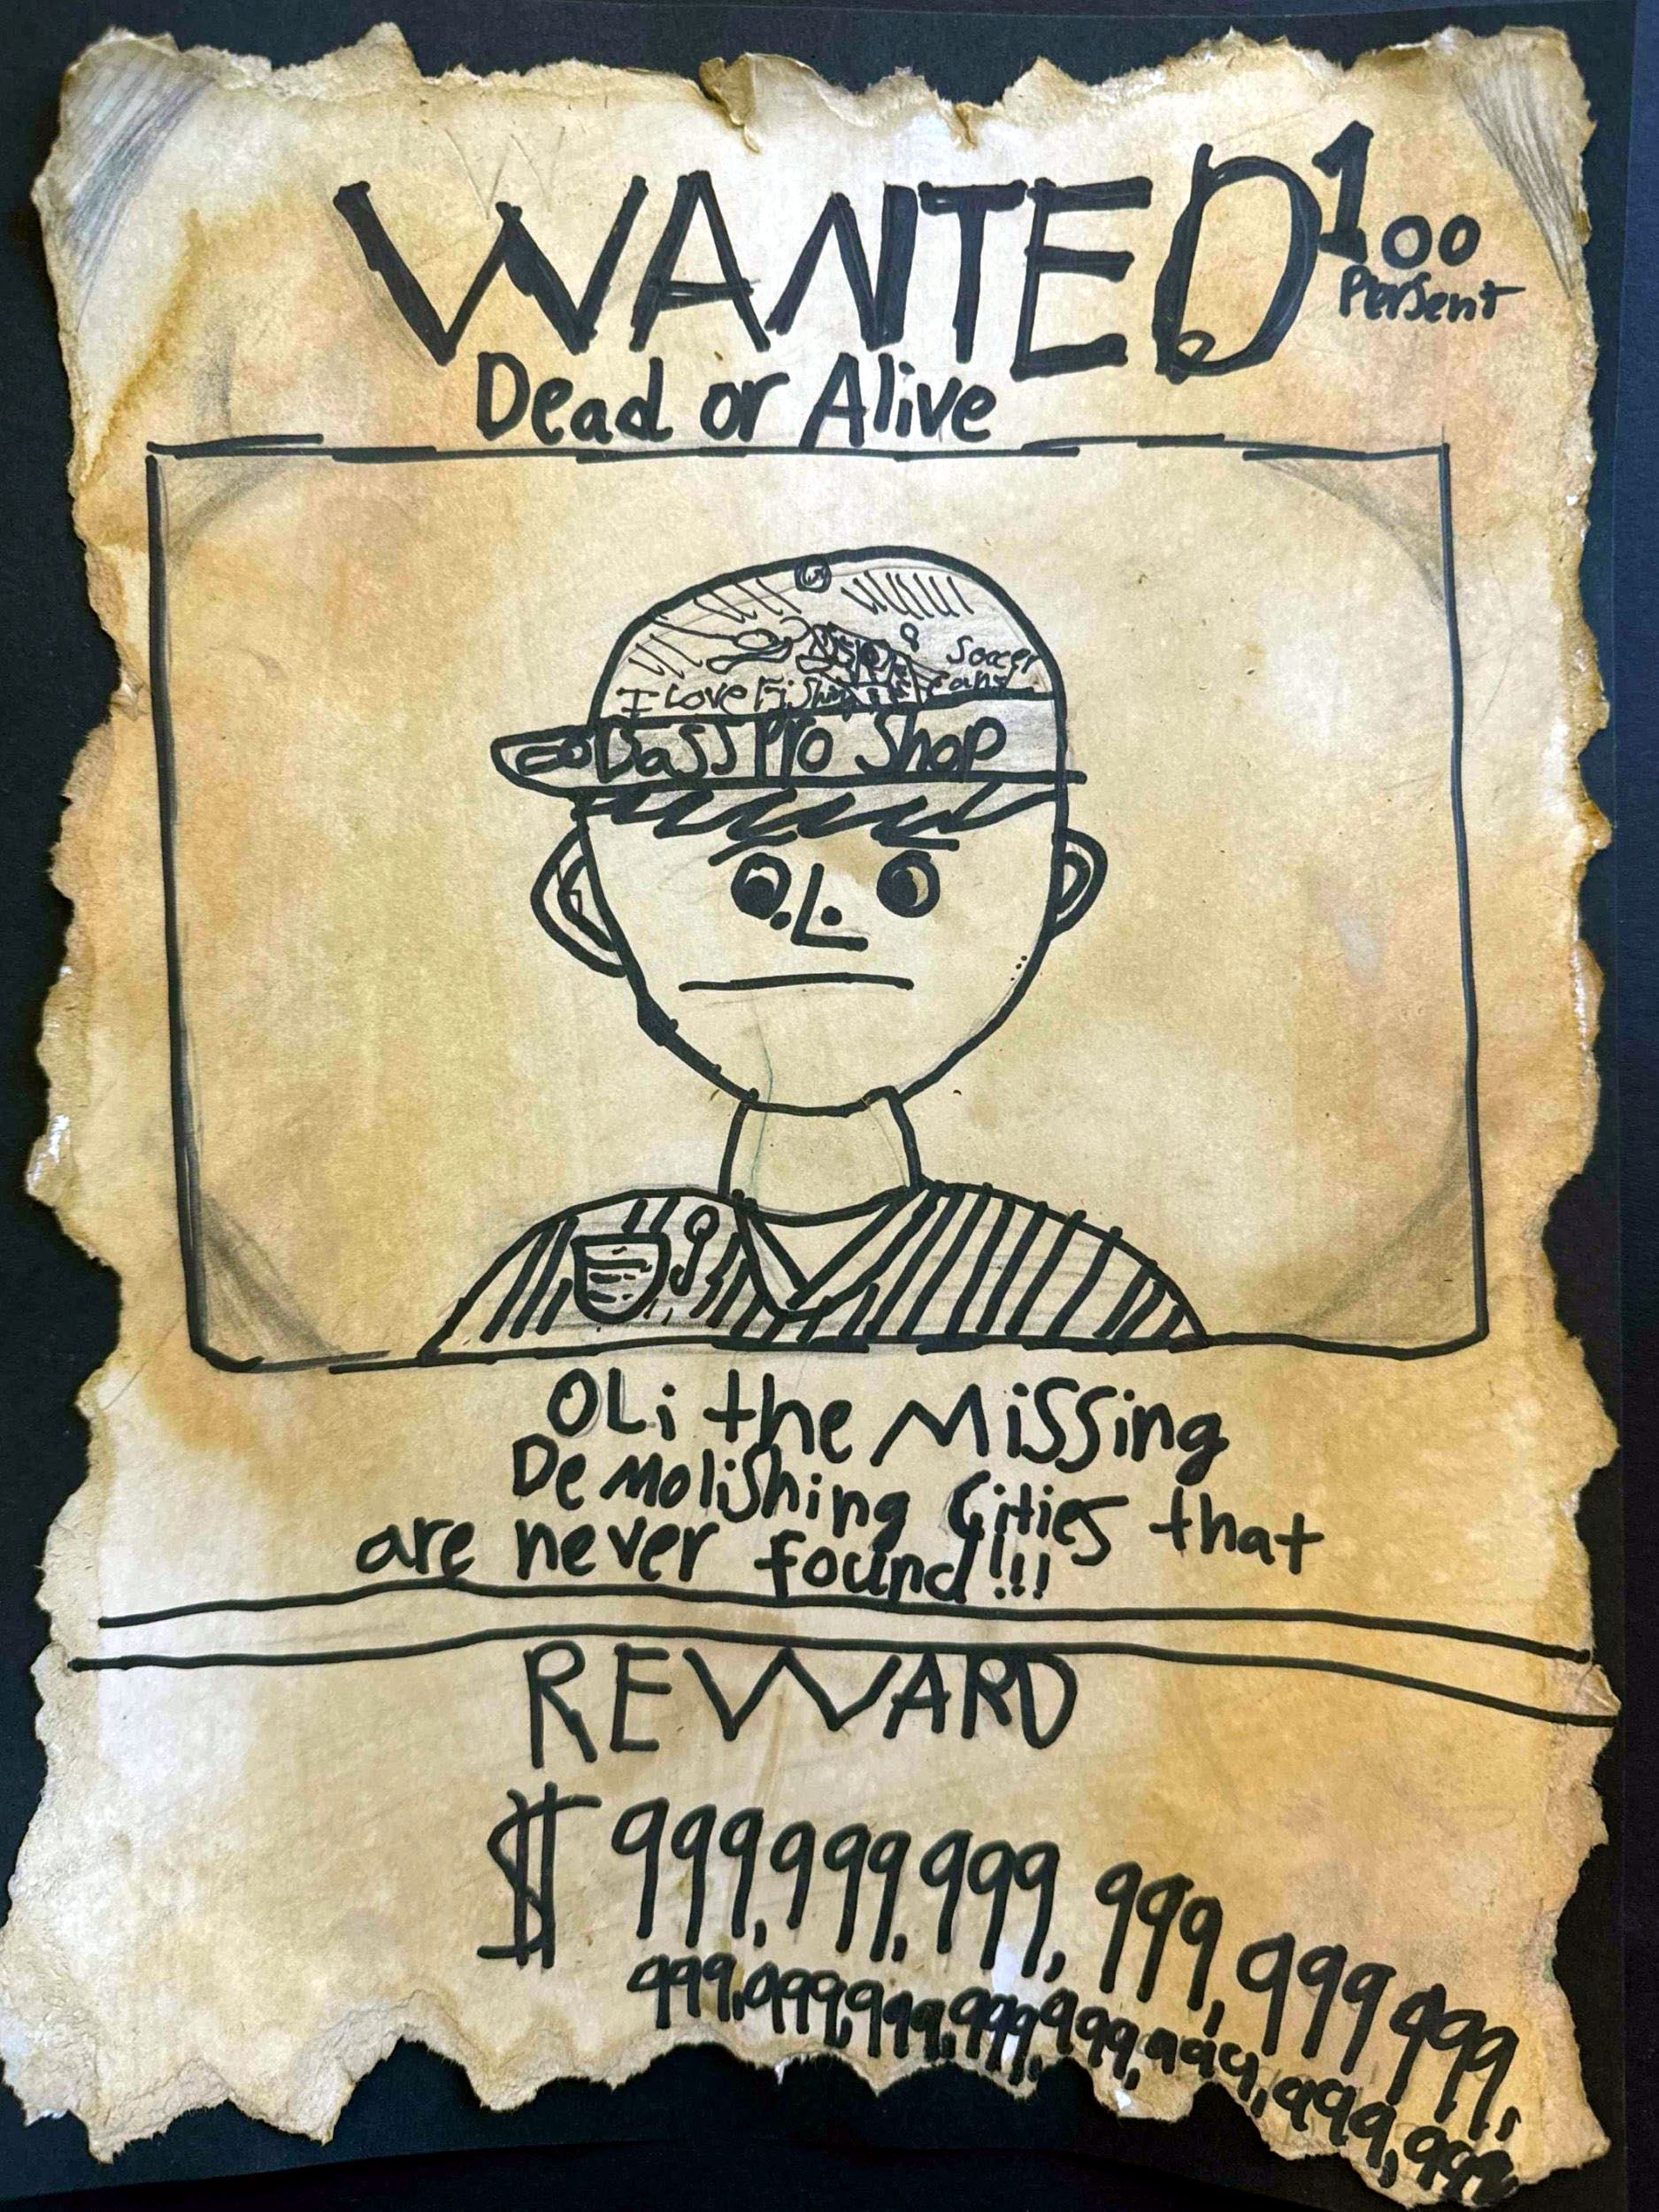 WANTED 100
Persent
Dead or Alive
Soccer
I Love Fishing
Bass Pro Shop
OLi the Missing
Demolishing Cities that
are never found!!!
REWARD
$ 999,999,999,999,999,999,
999,999,999,999,999,999,999,999